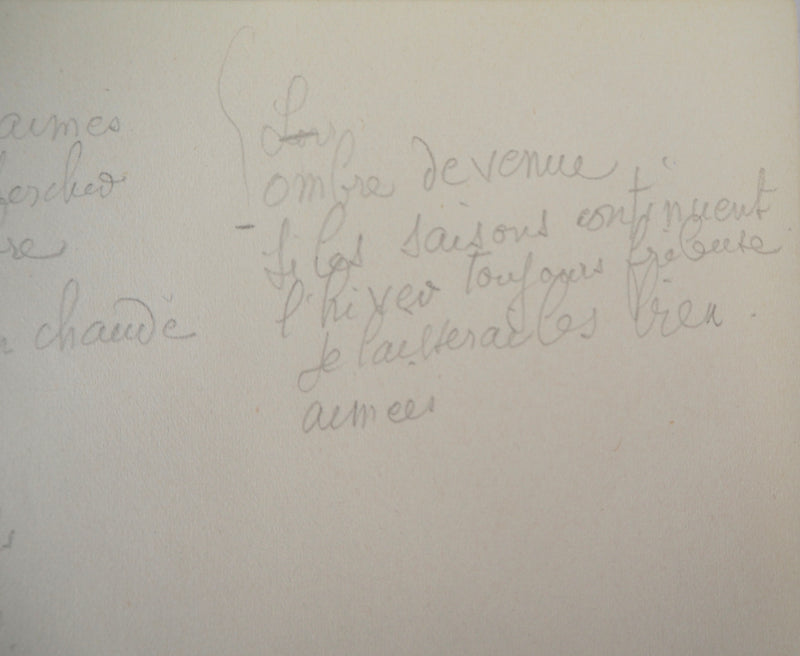 aimés
re
chaude
ombre devenue
- Si les saisons continuent
l'hiver toujours frileuse
Je laisserai les bien
aimées